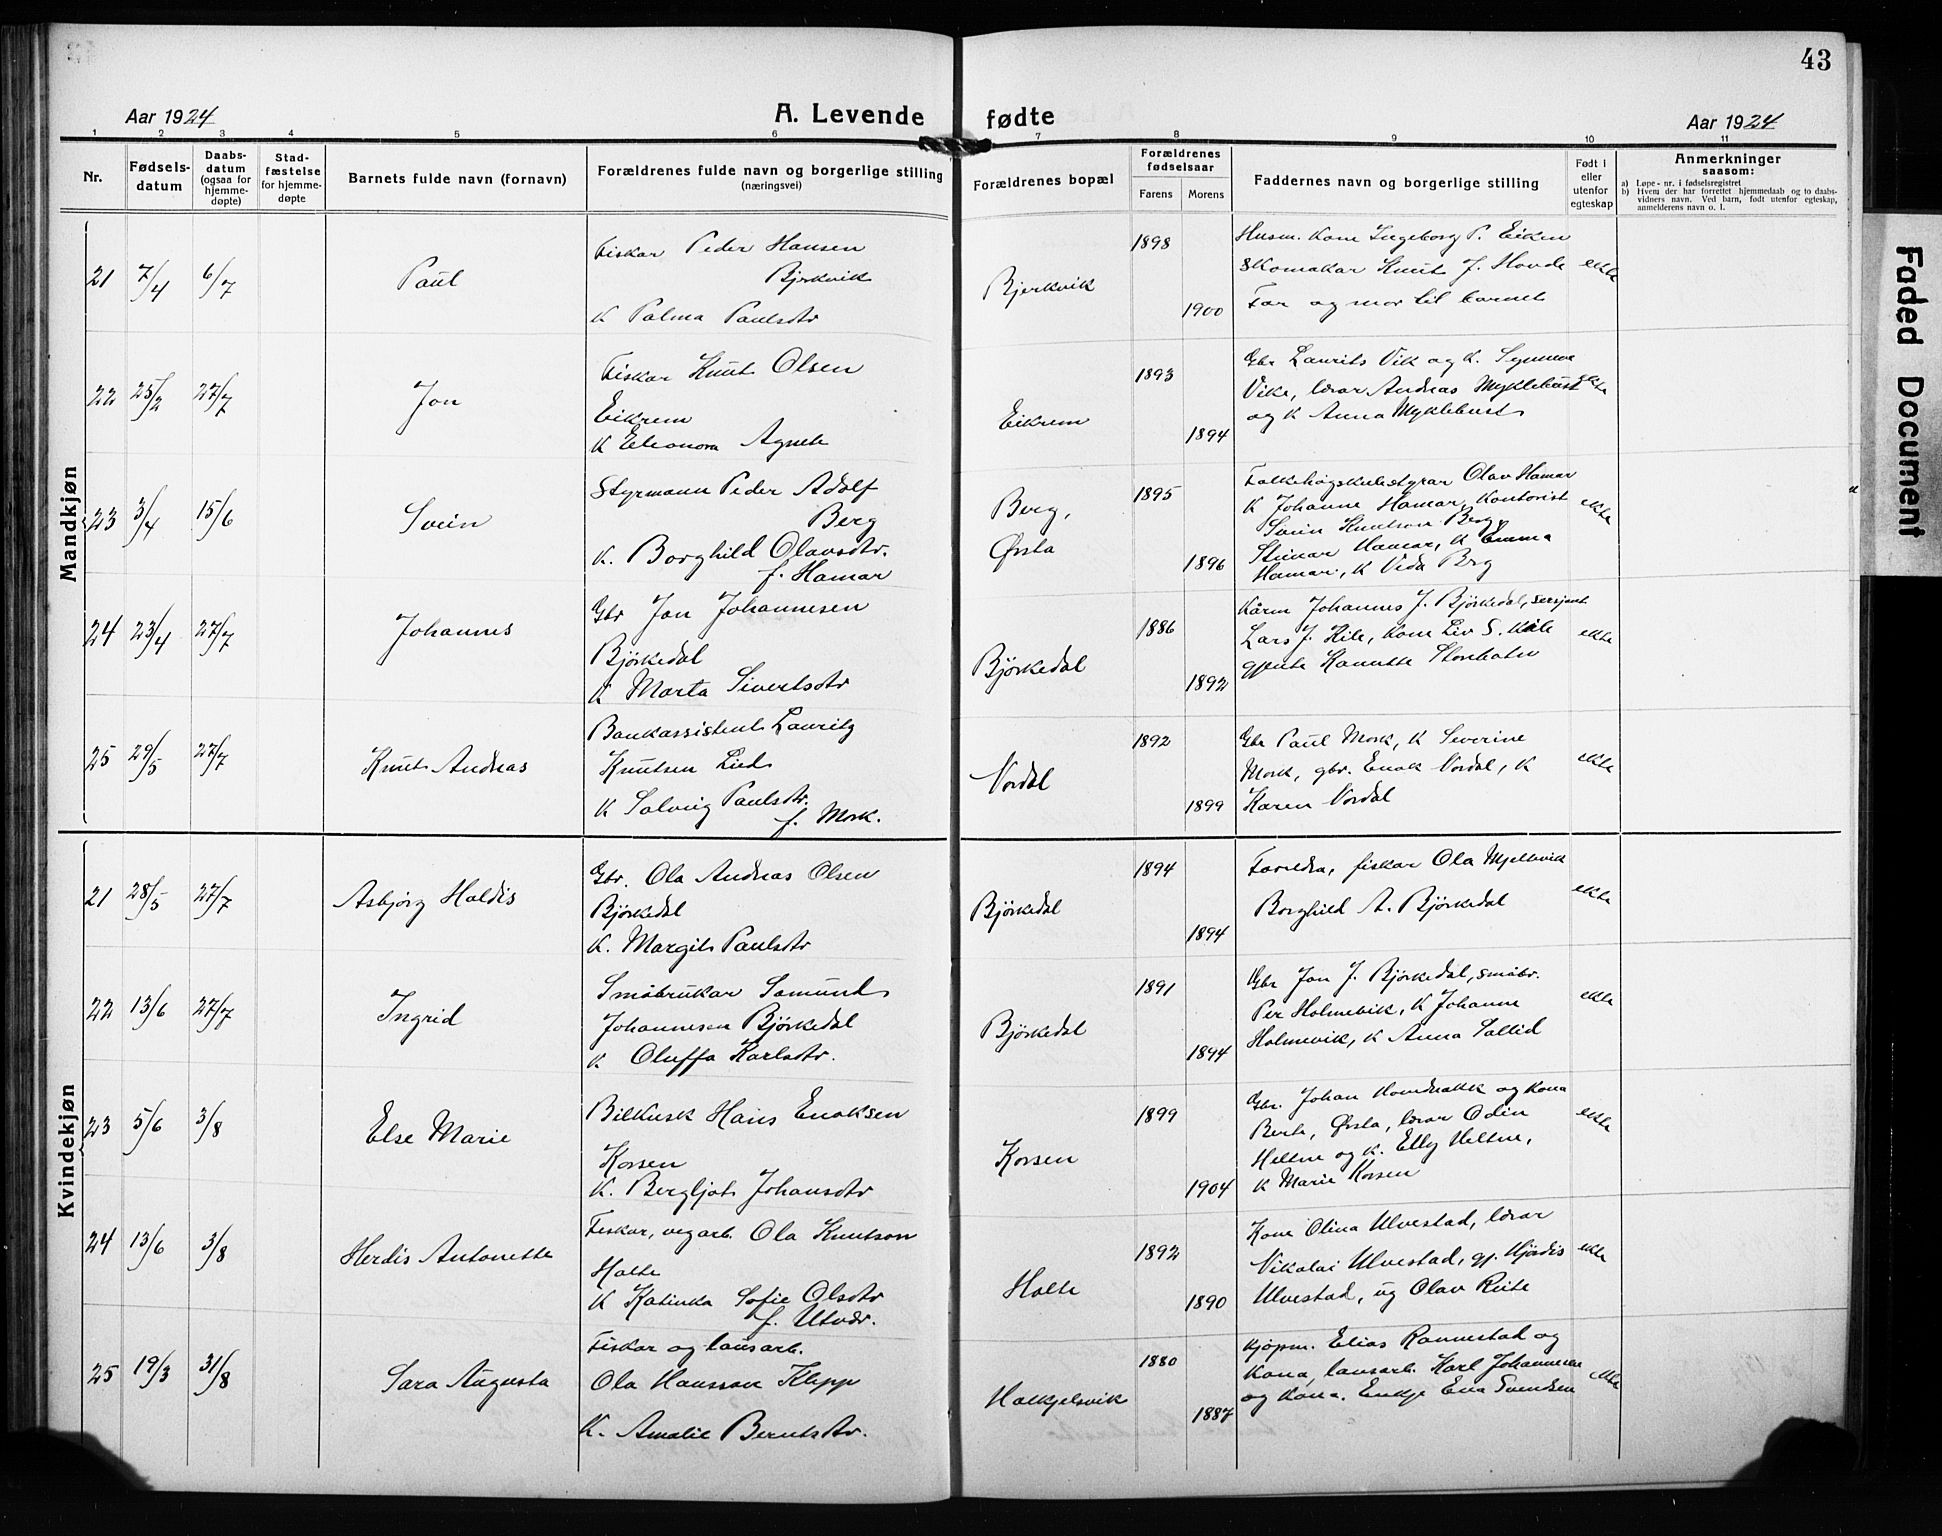 43
Aar 1924
A. Levende fødte
Aar 1924
1 2 3 4 5 6 7 8 9 10 11
Nr.
Fødsels-
datum
Daabs-
datum
(ogsaa for
hjemme-
døpte)
Stad-
fæstelse
for hjemme-
døpte
Barnets fulde navn (fornavn)
Forældrenes fulde navn og borgerlige stilling
(næringsvei)
Forældrenes bopæl
Forældrenes
fødselsaar
Farens Morens
Faddernes navn og borgerlige stilling
Født i
eller
utenfor
egteskap
Anmerkninger
saasom:
a) Løpe-nr. i fødselsregistret
b) Hvem der har forrettet hjemmedaab og to daabs-
vidners navn. Ved barn, født utenfor egteskap,
anmelderens navn o. l.
Mandkjøn
21 7/4 6/7 Paul
Fiskar Peder Hansen
Bjerkvik
K Palma Paulsdtr
Bjerkvik
1898
1900
Husm. Kone Ingeborg P. Eiken
Skomakar Knut J. Hovde
Far og mor til barnet
ekte
22 25/2 27/7 Jon
Fiskar Knut Olsen
Eikrem
K Eleonora Agnete
Eikrem
1893
1894
Gbr Laurits Vik og K. Synnøva
Vike, lærar Andreas Myklebust
og K Anna Myklebust
ekte
23 3/4 15/6 Svein
Styrmann Peder Adolf
Berg
K. Borghild Olavsdtr.
f. Hamar
Berg,
Ørsta
1895
1896
Folkehøgskulestyrar Olav Hamar
K Johanne Hamar, Kontorist
Svein Knutson Berg,
Steinar Hamar, K Emma
Hamar, K Vida Berg
ekte
24 23/4 27/7 Johannes
Gbr Jon Johannesen
Bjørkedal
K Marta Sivertsdtr
Bjørkedal
1886
1892
Kårm Johannes J. Bjørkedal, sersjent
Lars J. Kile, Kone Liv S. Kile
gjente
ekte
25 29/5 27/7 Knut Andreas
Bankassistent Lauritz
Knutsen Lied
K Solveig Paulsdtr.
f. Mork.
Nordal
1892
1899
Gbr Paul Mork, K Severine
Mork, gbr. Enok Nordal, K
Karen Nordal
ekte
Kvindekjøn
21 28/5 27/7 Asbjørg Haldis
Gbr. Ola Andreas Olsen
Bjørkedal
K. Margit Paulsdtr
Bjørkedal
1894
1894
Foreldra, fiskar Ola Mjelkvik
Borghild A. Bjørkedal
ekte
22 13/6 27/7 Ingrid
Småbrukar Samund
Johannesen Bjørkedal
K Oluffa Karlsdtr.
Bjørkedal
1891
1894
Gbr Jon J. Bjørkedal, småbr.
Per Holmevik, K Johanne
Holmevik, K Anna Sallid
ekte
23 5/6 3/8 Else Marie
Bilkusk Hans Enoksen
Korsen
K. Bergljot Johansdtr
Korsen
1899
1904
Gbr. Johan Hovdnakk og Kona
Berte, Ørsta, lærar Odin
Heltne og K. Elly Heltne,
K Marie Korsen
ekte
24 13/6 3/8 Herdis Antonette
Fiskar, vegarb. Ola Knutson
Holte
K Katinka Sofie Olsdtr
f. Utvær.
Holte
1892
1890
Kone Olina Ulvestad, lærar
Nikolai Ulvestad, gj. Hjørdis
Ulvestad, ug Olav Reite
ekte
25 19/3 31/8 Sara Augusta
Fiskar og lausarb.
Ola Hansson Klepp
K. Amalie Berntsdtr.
Halkjelsvik
1880
1887
Kjøpm. Elias Rønnestad og
Kona, lausarb. Karl Johannesen
og Kona. Enkje Ena Svendsen
ekte
Faded Document